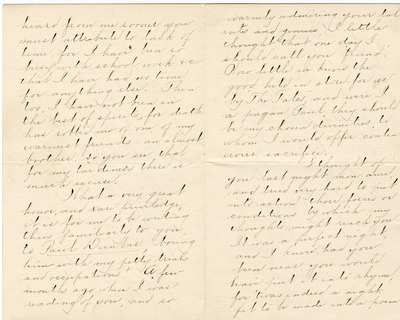 heard from me sooner you
must attribute to lack of
time for I have been so
busy with school work &c
that I have had no time
for anything else. Then
too I have not been in
the best of spirits, for death
has rotten me of one of my
warmest friends an almost
brother. So you see, that
for my tardiness there is
much excuse.
What a very great
honor, and rare privilege,
it is for me to be writing
thus familiarly to you,
to Paul Dunbar boring
him with my petty trials
and occupations! A few
months ago when I was
reading of you, and so
warmly admiring your tal
ents and genius I little
thought that one day I
should call you "friend."
How little we know the
good held in store for us
by the Fates, and were I
a pagan Paul they should
be my chosen divinities, to
whom I would offer contin
uous sacrifice.
I thought of
you last night, mon ami,
and tried very hard to put
into action those forces or
conditions by which my
thoughts might reach you.
It was a perfect night
and I know had you
been near, you would
have put it into rhyme,
for 'twas indeed a night
fit to be made into a poem